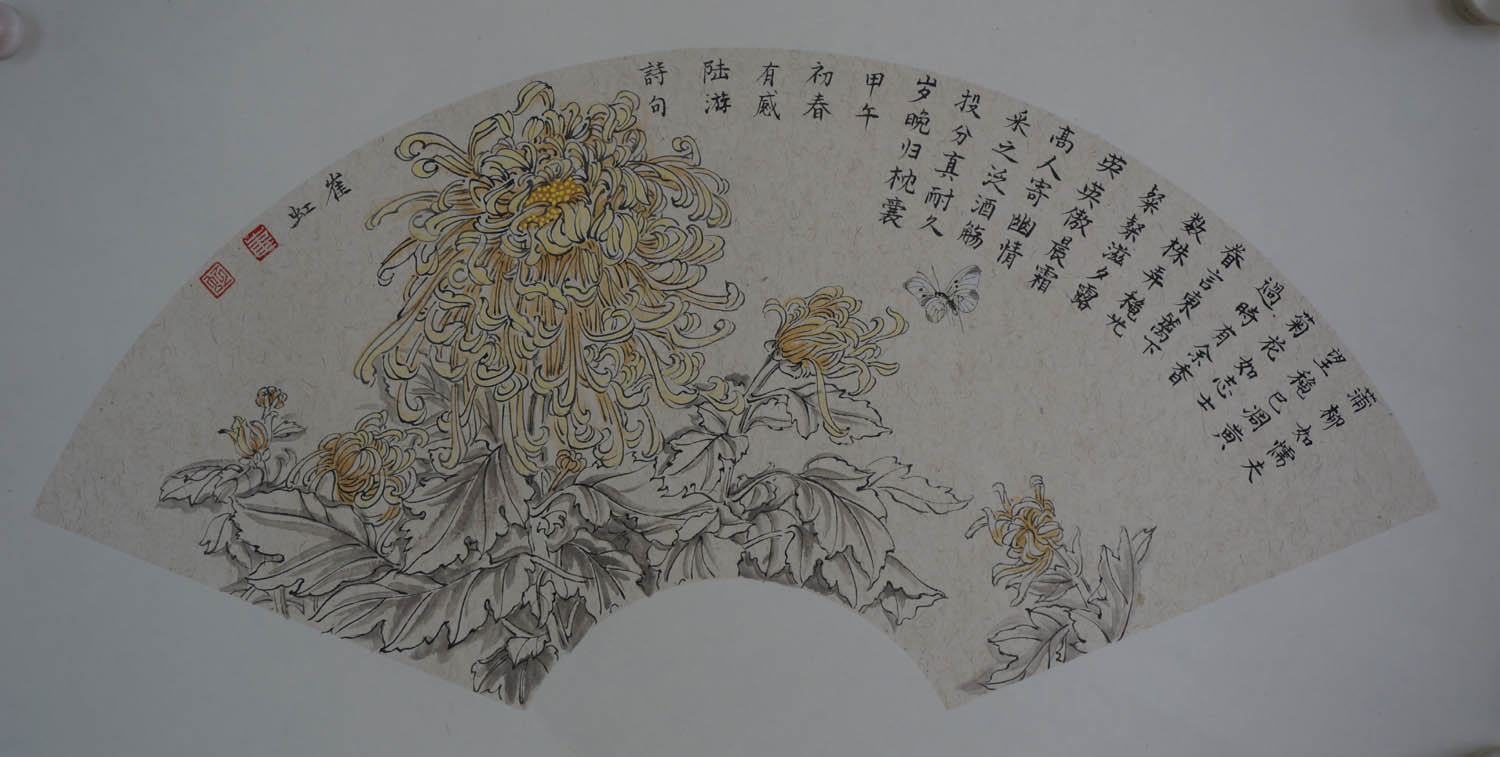 蒲柳如懦夫
望穐已凋黄
菊花如志士
過時有余香
眷言東篱下
数株弄穐光
粲粲滋夕露
英英傲晨霜
高人寄幽情
采之泛酒觞
投分真耐久
岁晚归枕囊
甲午
初春
有感
陆游
詩句
崔虹